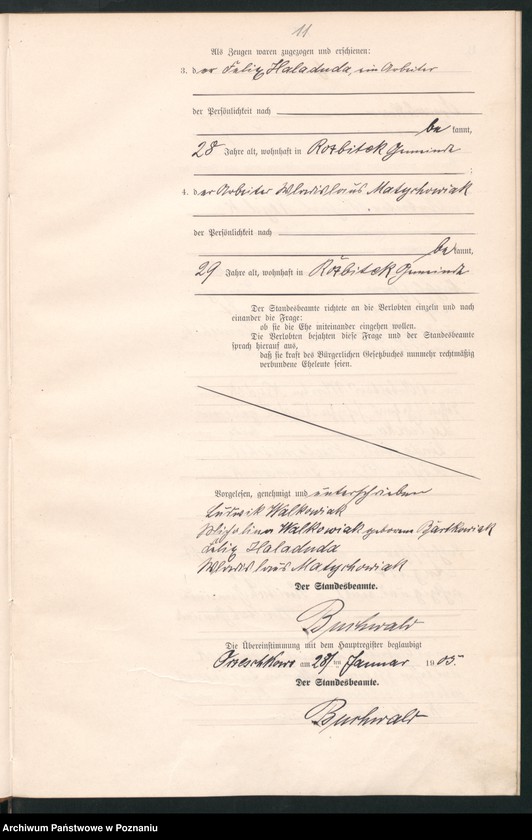 11
Als Zeugen waren zugezogen und erschienen:
3. der Felix Haladuda, ein Arbeiter
der Persönlichkeit nach
be kannt,
28 Jahre alt, wohnhaft in Rozbitek Gemeinde
;
4. der Arbeiter Wladislaus Matychowiak
der Persönlichkeit nach
be kannt,
29 Jahre alt, wohnhaft in Rozbitek Gemeinde
Der Standesbeamte richtete an die Verlobten einzeln und nach
einander die Frage:
ob sie die Ehe miteinander eingehen wollen.
Die Verlobten bejahten diese Frage und der Standesbeamte
sprach hierauf aus,
daß sie kraft des Bürgerlichen Gesetzbuches nunmehr rechtmäßig
verbundene Eheleute seien.
Vorgelesen, genehmigt und unterschrieben
Ludwik Walkowiak
Walkowiak geborene Bartkowiak
Felix Haladuda
Wladislaus Matychowiak
Der Standesbeamte.
Buchwald
Die Übereinstimmung mit dem Hauptregister beglaubigt
Orzeschkowo am 28ten Januar 1905
Der Standesbeamte.
Buchwald
Archiwum Państwowe w Poznaniu